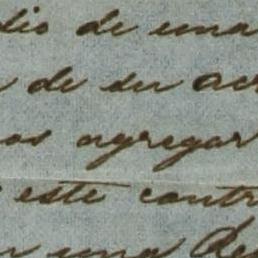 dio de una
de su acr
os agregar
este contr
una De